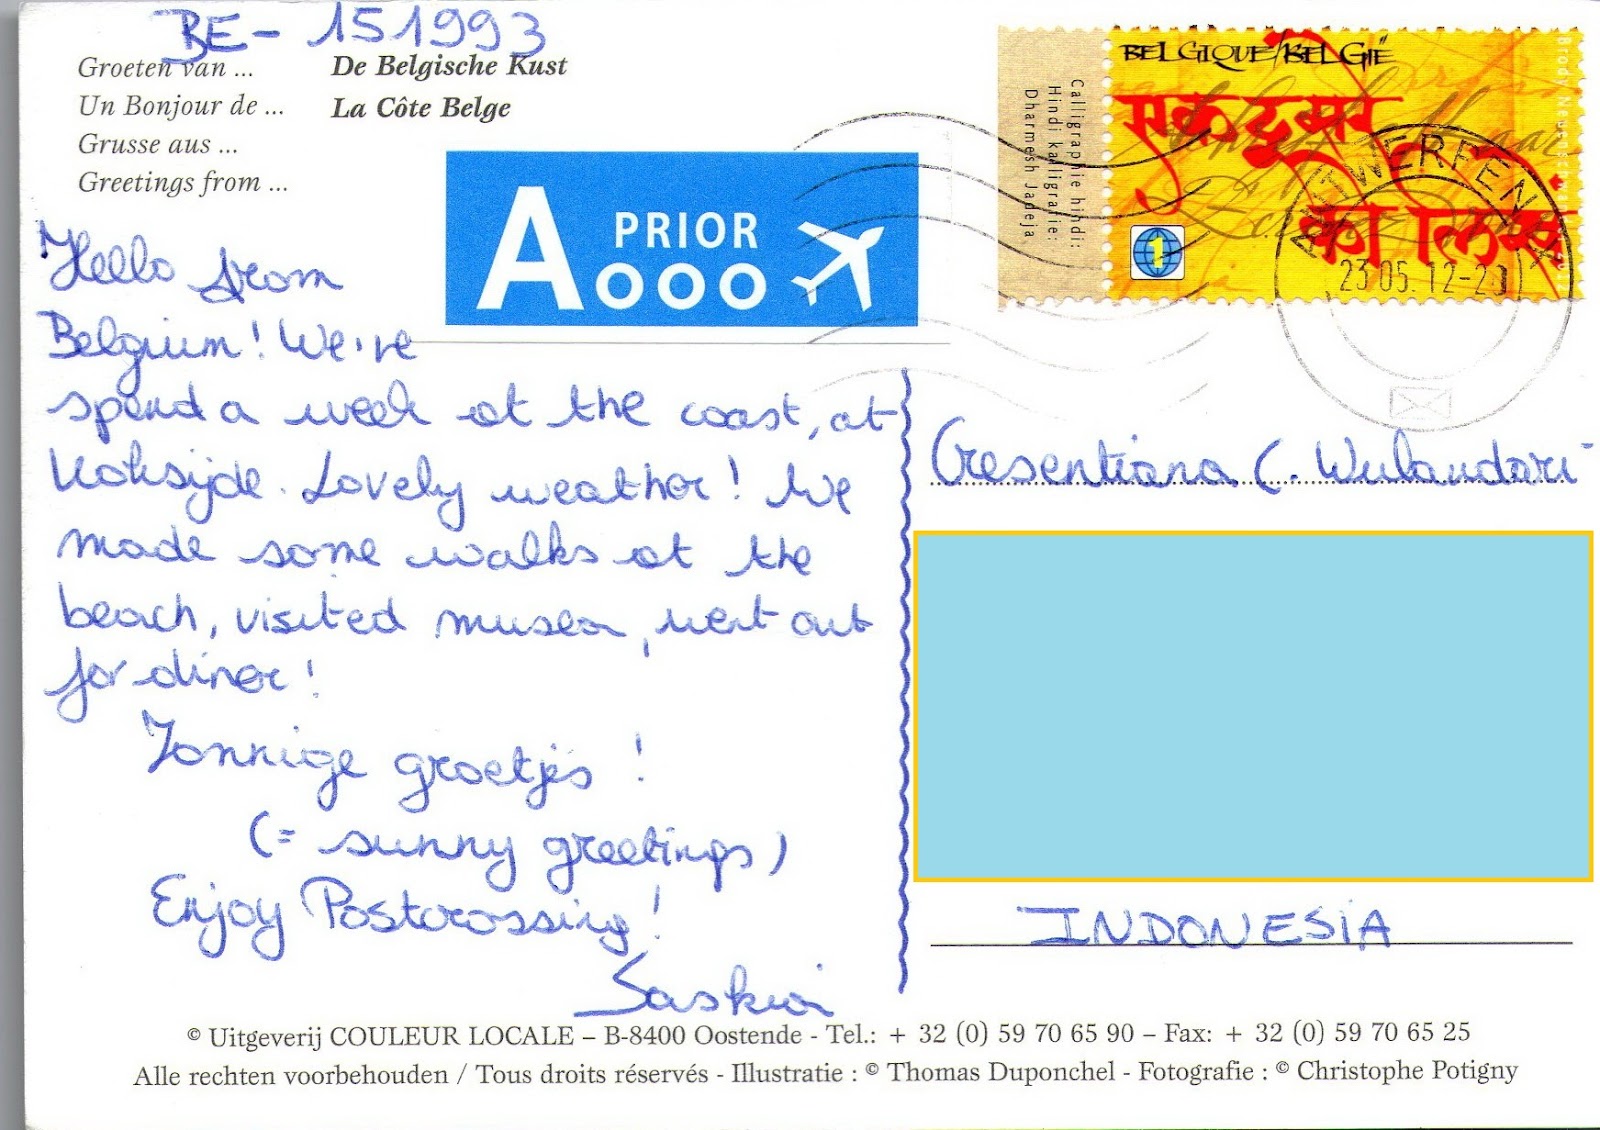 BE-151993
Groeten van ... De Belgische Kust
Un Bonjour de ... La Côte Belge
Grusse aus ...
Greetings from ...
A PRIOR
BELGIQUE/BELGIË
Calligraphie hindi:
Hindi kalligrafie:
Dharmesh Jadeja
एक दूसरे
को लिखें
1
ANTWERPEN X
23 05. 12-2
Hello from
Belgium! We're
spend a week at the coast, at
Koksijde. Lovely weather! We
made some walks at the
beach, visited musea, went out
for diner!
Zonnige groetjes!
(= sunny greetings)
Enjoy Postcrossing!
Saskia
Cresentiana C. Wulandari
INDONESIA
© Uitgeverij COULEUR LOCALE – B-8400 Oostende - Tel.: + 32 (0) 59 70 65 90 – Fax: + 32 (0) 59 70 65 25
Alle rechten voorbehouden / Tous droits réservés - Illustratie : © Thomas Duponchel - Fotografie : © Christophe Potigny